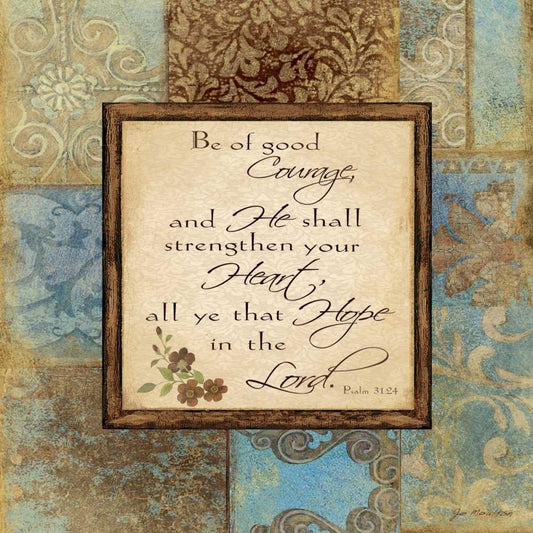 Be of good
Courage,
and He shall
strengthen your
Heart,
all ye that Hope
in the
Lord.
Psalm 31:24
Jo Moulton